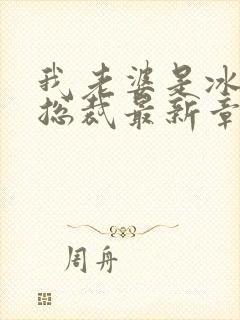 我老婆是冰
总裁最新章
周舟